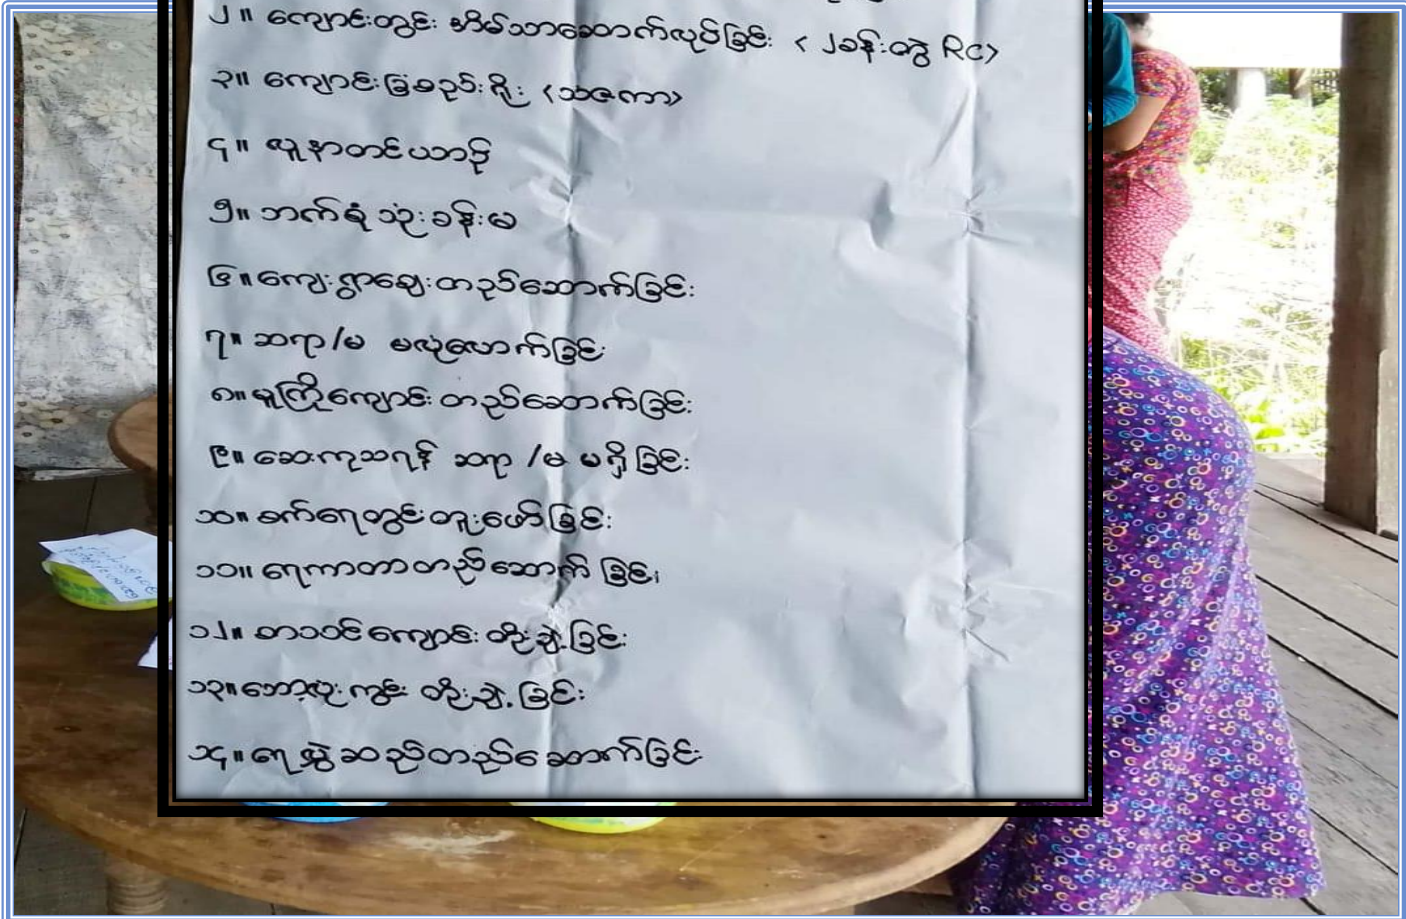 ၂။ ကျောင်းတွင်း အိမ်သာဆောက်လုပ်ခြင်း < ၂ခန်းတွဲ RC>
၃။ ကျောင်းခြံစည်းရိုး <သံဇကာ>
၄။ လူနာတင်ယာဉ်
၅။ ဘက်စုံသုံးခန်းမ
၆။ ကျေးရွာဈေးတည်ဆောက်ခြင်း
၇။ ဆရာ/မ မလုံလောက်ခြင်း
၈။ မူကြိုကျောင်း တည်ဆောက်ခြင်း
၉။ ဆေးကုသရန် ဆရာ/မ မရှိခြင်း
၁၀။ စက်ရေတွင်းတူးဖော်ခြင်း
၁၁။ ရေကာတာတည်ဆောက်ခြင်း၊
၁၂။ စာသင်ကျောင်း တိုးချဲ့ခြင်း
၁၃။ ဘော့လုံးကွင်း တိုးချဲ့ခြင်း
၁၄။ ရေလွှဲဆည်တည်ဆောက်ခြင်း